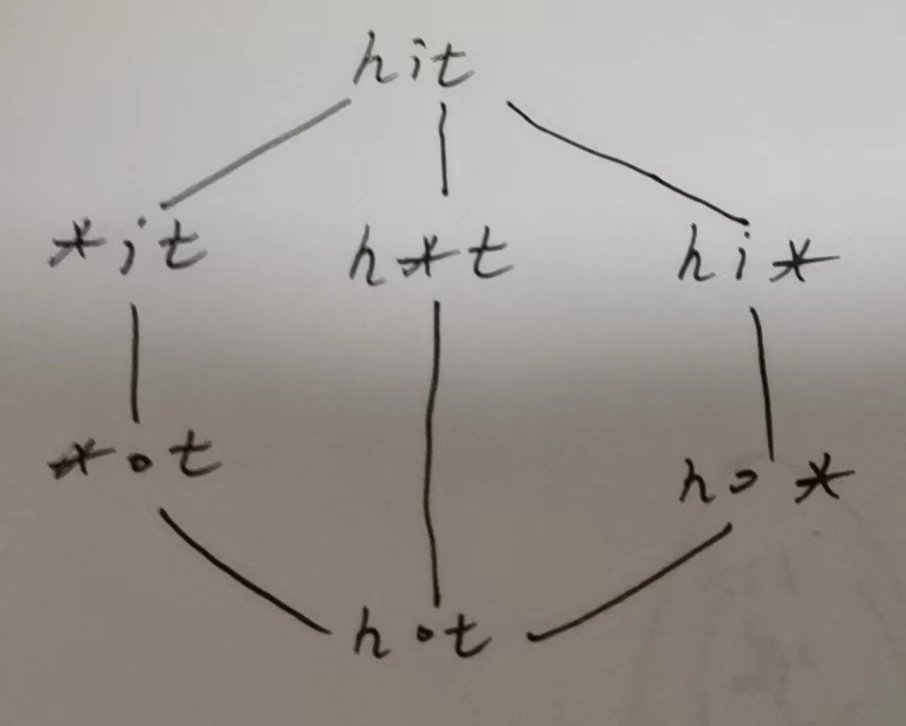 hit
*it h*t hi*
*ot ho*
hot